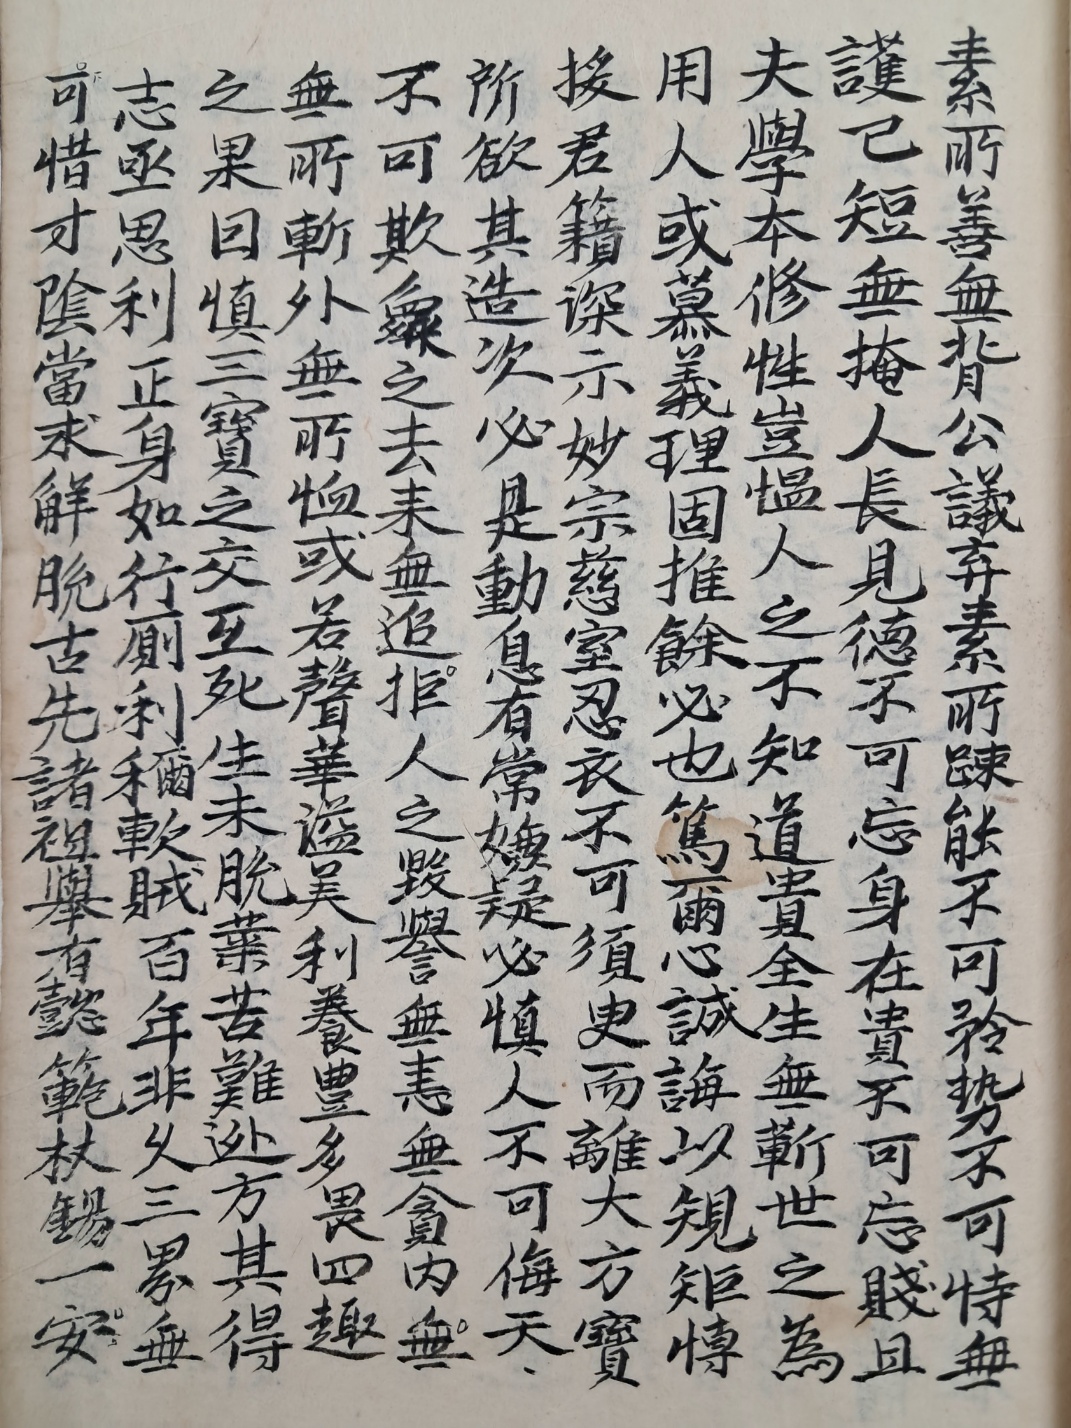 素所善無背公議弃素所踈能不可矜势不可恃無
護己短無掩人長見德不可忘身在貴不可忘賤且
夫學本修性豈愠人之不知道貴全生無蘄世之為
用人或慕義理固推餘必也篤爾心誠誨以規矩慱
援君籍深示妙宗慈室忍衣不可須臾而離大方寶
所欲其造次必是動息有常嫌疑必慎人不可侮天
不可欺衆之去来無追拒人之毀譽無恚無貪内無
無所斬外無所恤或若聲華溢美利養豊多畏四趣
之果因慎三寶之交互死生未脫業苦難迯方其得
志亟思利正身如行厠利稱軟賊百年非久三界無
可惜寸陰當求解脫古先諸祖舉有懿範杖錫一安